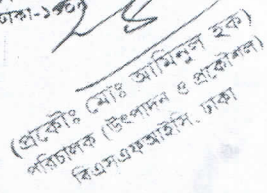 ঢাকা-১০০০
(প্রকৌঃ মোঃ আমিনুল হক)
পরিচালক (উৎপাদন ও প্রকৌশল)
বিএসএফআইসি, ঢাকা